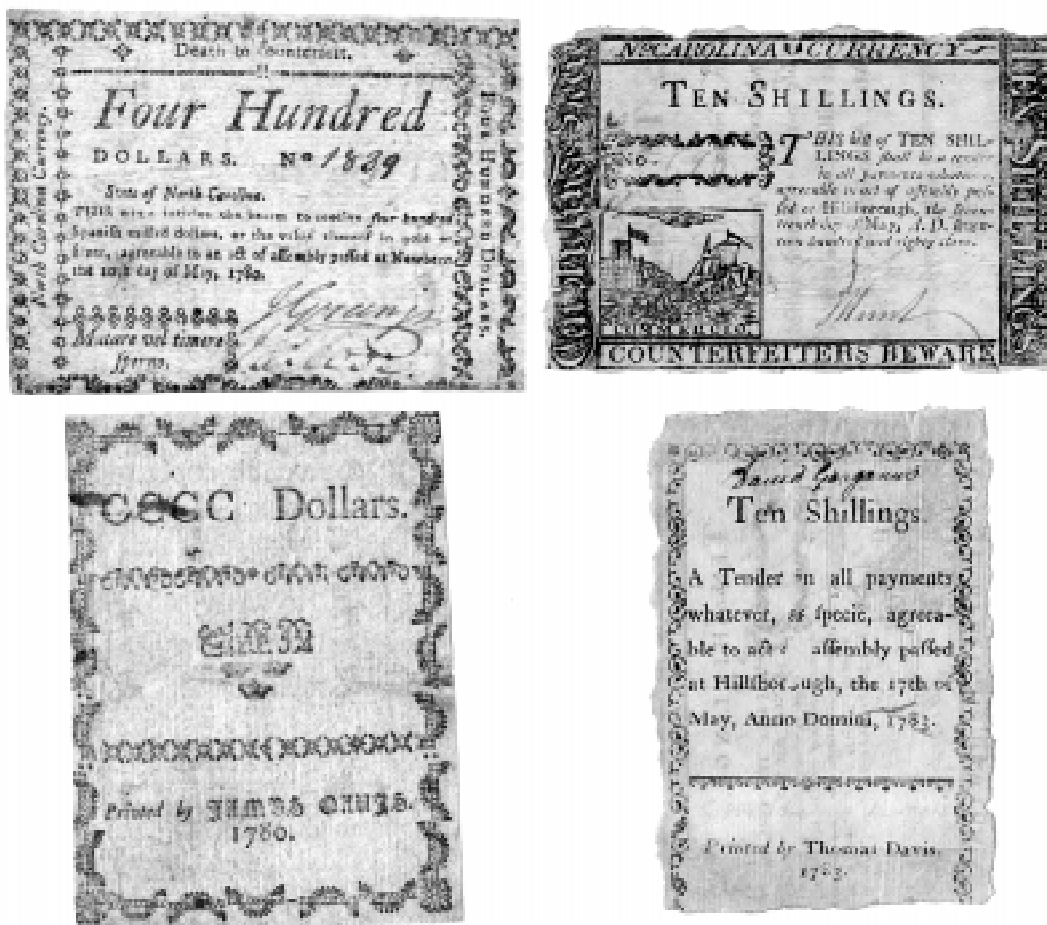 Death to Counterfeit.
Four Hundred
DOLLARS. No 1839
State of North Carolina.
THIS the bearer to receive four hundred
Spanish milled dollars, or the value thereof in gold or
silver, agreeable to an act of assembly passed at Newbern
the 10th day of May, 1780.
Mutare vel timere
sperno.
North Carolina Currency.
FOUR HUNDRED DOLLARS.
No CAROLINA CURRENCY
TEN SHILLINGS.
No
THIS bill of TEN SHIL-
LINGS shall be a tender
in all payments whatever,
agreeable to act of assembly pas-
sed at Hillsborough, the Seven-
teenth day of May, A. D. Seven-
teen hundred and eighty three.
COUNTERFEITERS BEWARE
CCCC Dollars.
Printed by JAMES DAVIS.
1780.
David
Ten Shillings.
A Tender in all payments
whatever, as specie, agreea-
ble to act assembly passed
at Hillsborough, the 17th of
May, Anno Domini, 1783.
Printed by Thomas Davis.
1783.